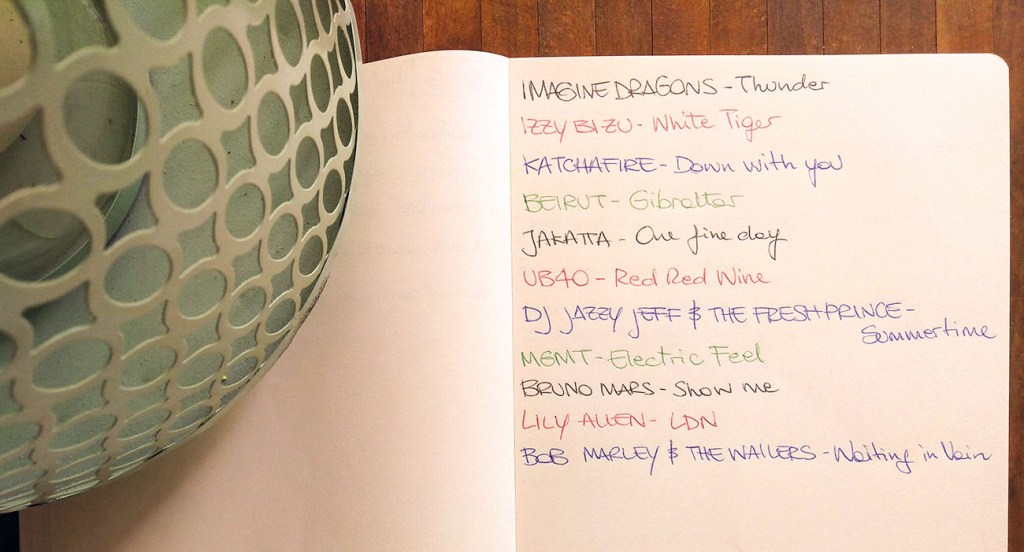 IMAGINE DRAGONS - Thunder
IZZY BIZU - White Tiger
KATCHAFIRE - Down with you
BEIRUT - Gibraltar
JAKATTA - One fine day
UB40 - Red Red Wine
DJ JAZZY JEFF & THE FRESH PRINCE -
Summertime
MGMT - Electric Feel
BRUNO MARS - Show me
LILY ALLEN - LDN
BOB MARLEY & THE WAILERS - Waiting in Vain